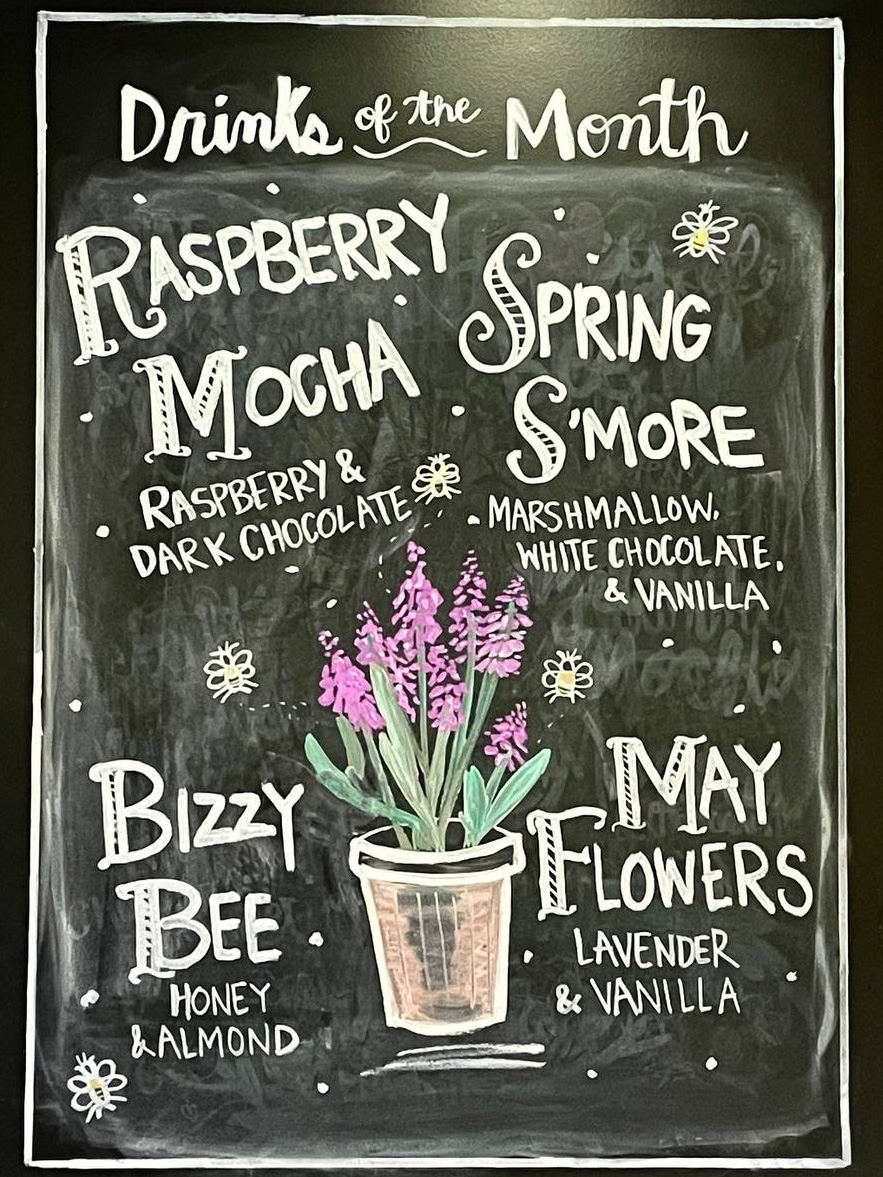 Drinks of the Month
RASPBERRY
MOCHA
RASPBERRY &
DARK CHOCOLATE
SPRING
S'MORE
MARSHMALLOW,
WHITE CHOCOLATE,
& VANILLA
BIZZY
BEE
HONEY
& ALMOND
MAY
FLOWERS
LAVENDER
& VANILLA